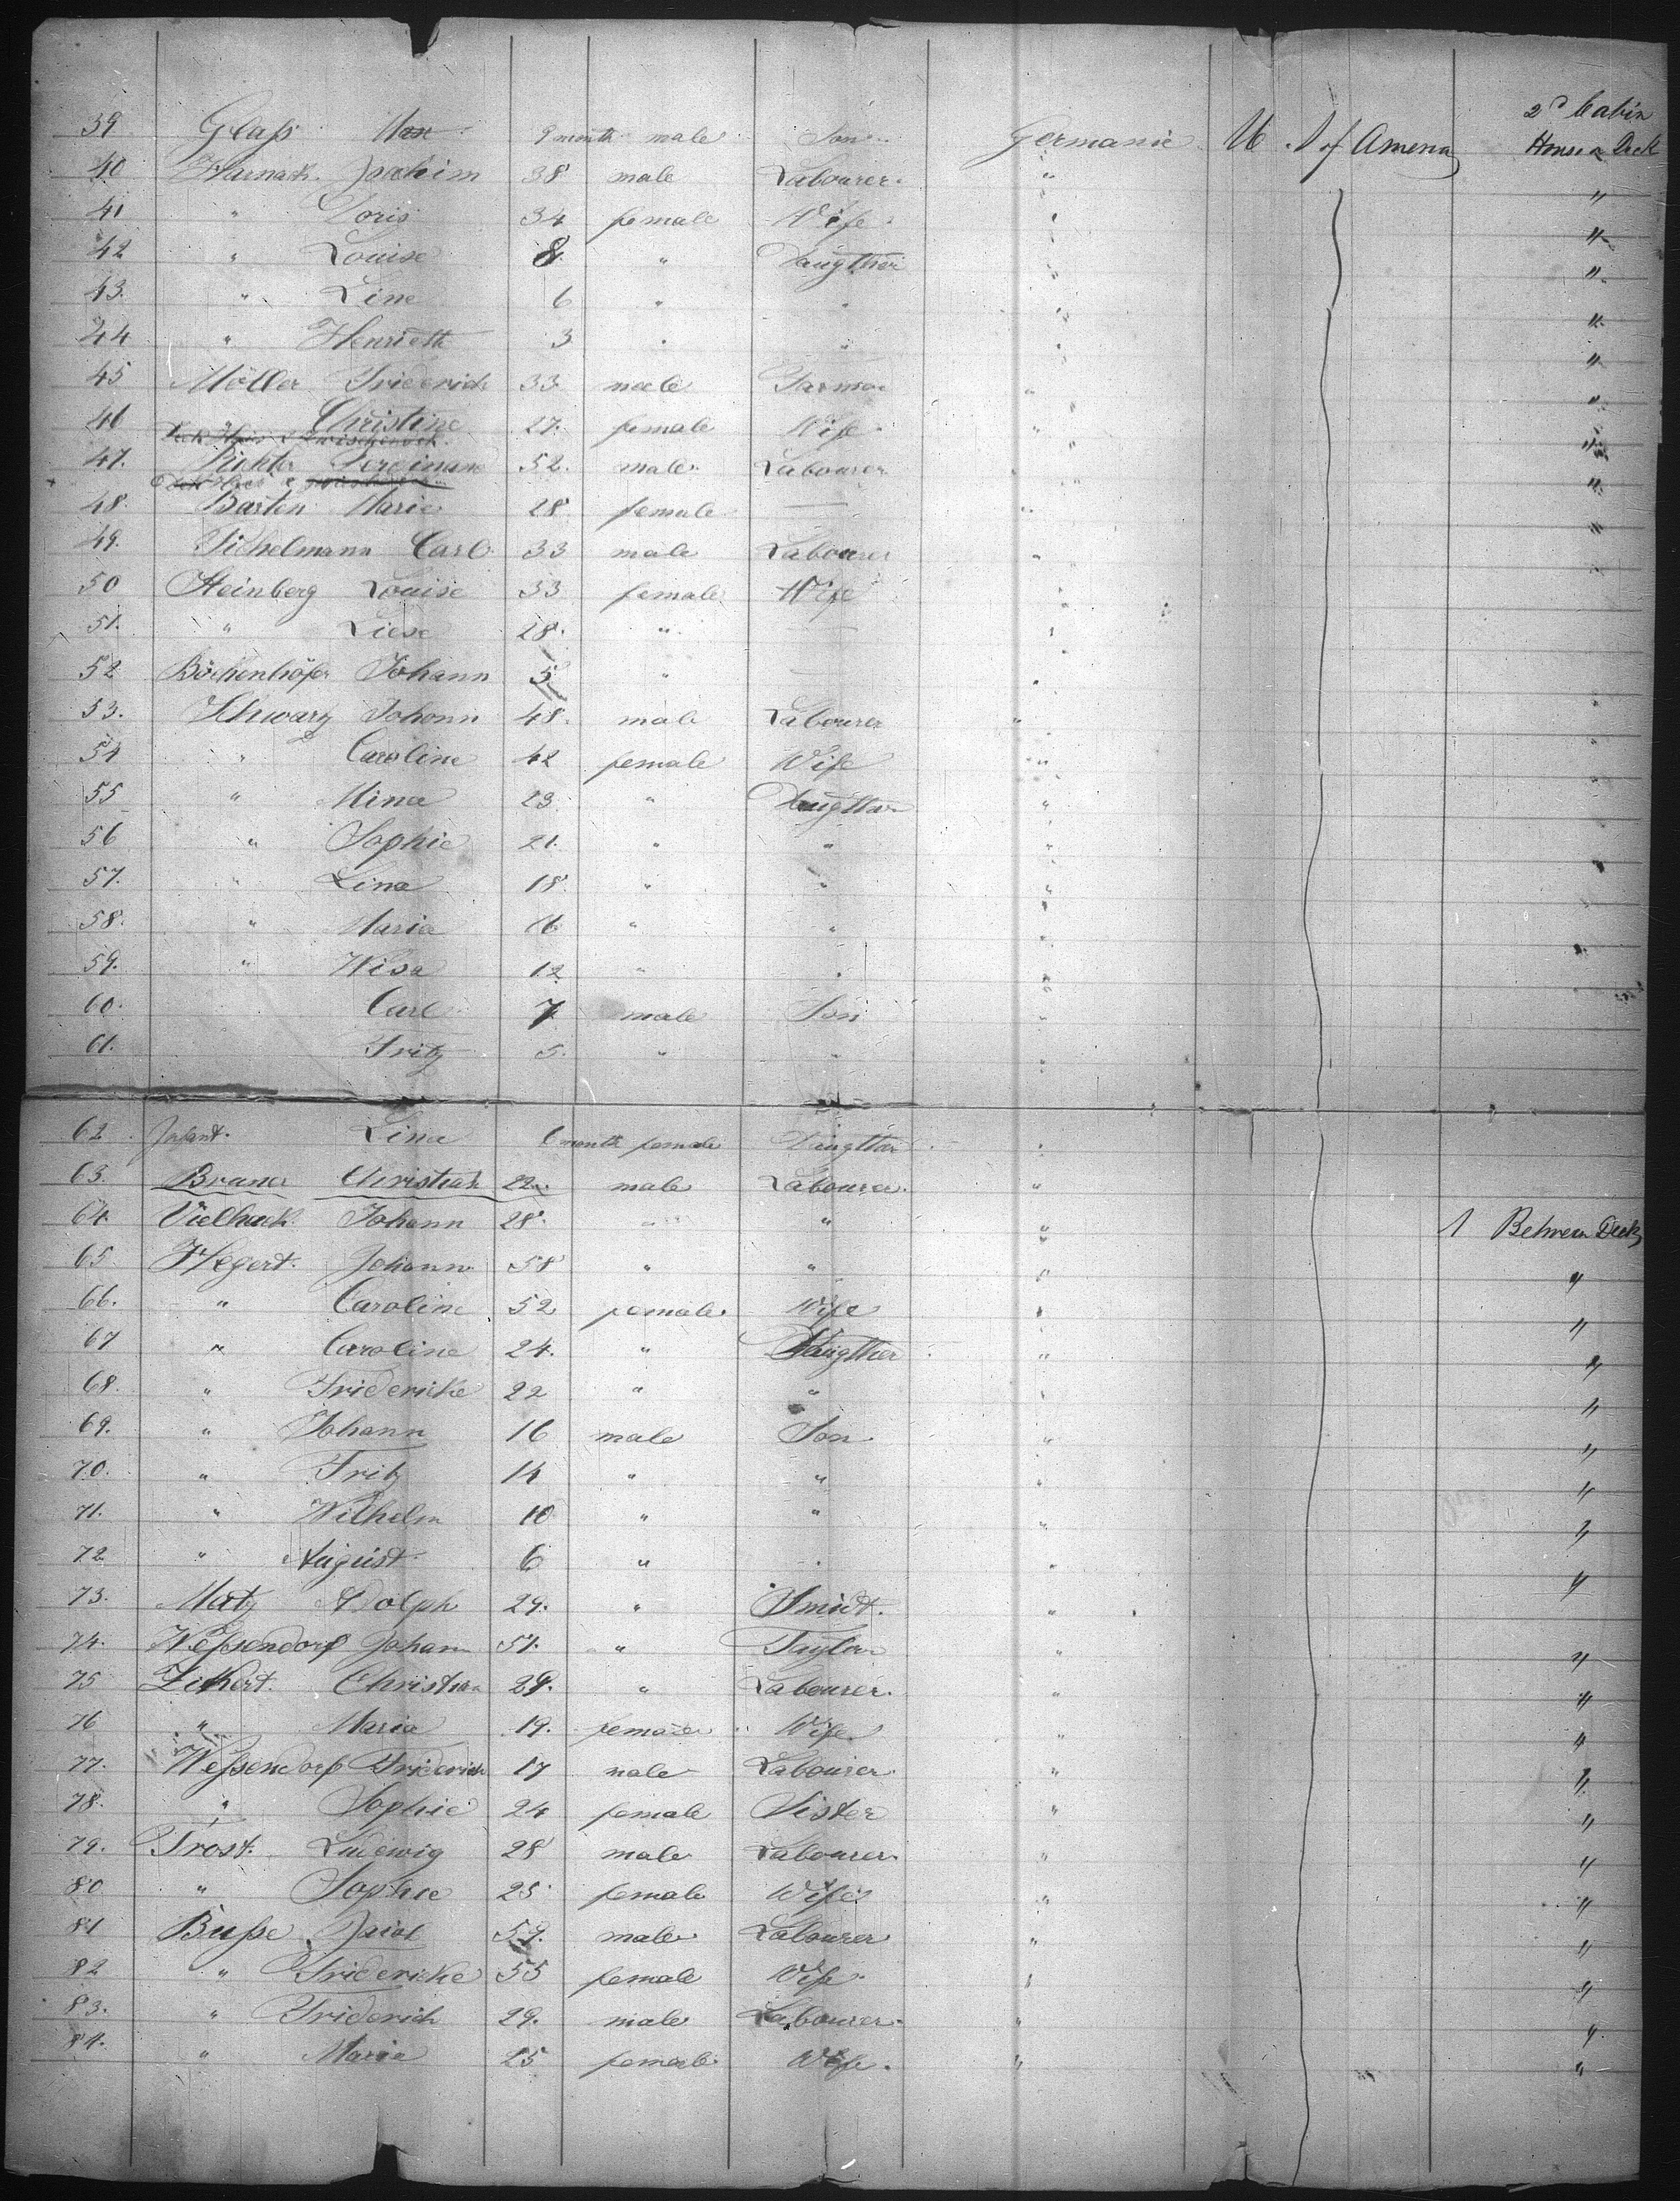 2d Cabin
39 Glaſs 9 month male Son Germanie U. S of America House a Deck
40 Harnack Jochim 38 male Labourer "
41 " Doris 34 female Wife " "
42 " Louise 8 " Daugther " "
43. " Line 6 " " " "
44 " Henrieth 3 " " " "
45 Möller Friederich 33 male Farmer " "
46 Christine 27. female Wife " "
47. Richter Ferdinand 52. male Labourer " "
48. Barten Marie 28 female — " "
49. Sichelmann Carl 33 male Labourer "
50 Steinberg Louise 33 female Wife "
51. " Liese 28. " — "
52 Böckenhöfer Johann 5 " — "
53. Schwarz Johann 48. male Labourer "
54 " Caroline 42 female Wife "
55 " Mina 23 " Daugtter "
56 " Sophie 21. " " "
57. " Lina 18 " " "
58. " Maria 16 " " "
59. " Wisa 12 " " "
60. Carl 7 male Son "
61. Fritz 5. " " "
62 Infant. Lina 6 month female Daugtter "
63. Bruner Christian 22. male Labourer. "
64. Vielhack Johann 28. " " " 1 Behwen Deck
65. Hegert. Johann 58 " " " "
66. " Caroline 52 female. Wife " "
67 " Caroline 24. " Daugtter " "
68. " Fridericke 22 " " " "
69. " Johann 16 male Son " "
70. " Fritz 14 " " " "
71. " Wilhelm 10 " " " "
72 " August 6 " " " "
73. Matz Adolph 29. " Smidt. "
74. Weſsendorf Johann 51. " Taylor " "
75 Zikert. Christian 29. " Labourer. " "
76 " Maria 19. female Wife " "
77. Weſsendorf Friderich 17 male Labourer " "
78. " Sophie 24 female Sister " "
79. Trost. Ludewig 28 male Labourer " "
80 " Sophie 25 female Wife " "
81 Buſse Jacob 59. male Labourer " "
82 " Fridericke 55 female Wife " "
83. " Friderich 29. male Labourer " "
84. " Maria 25 female Wife. " "